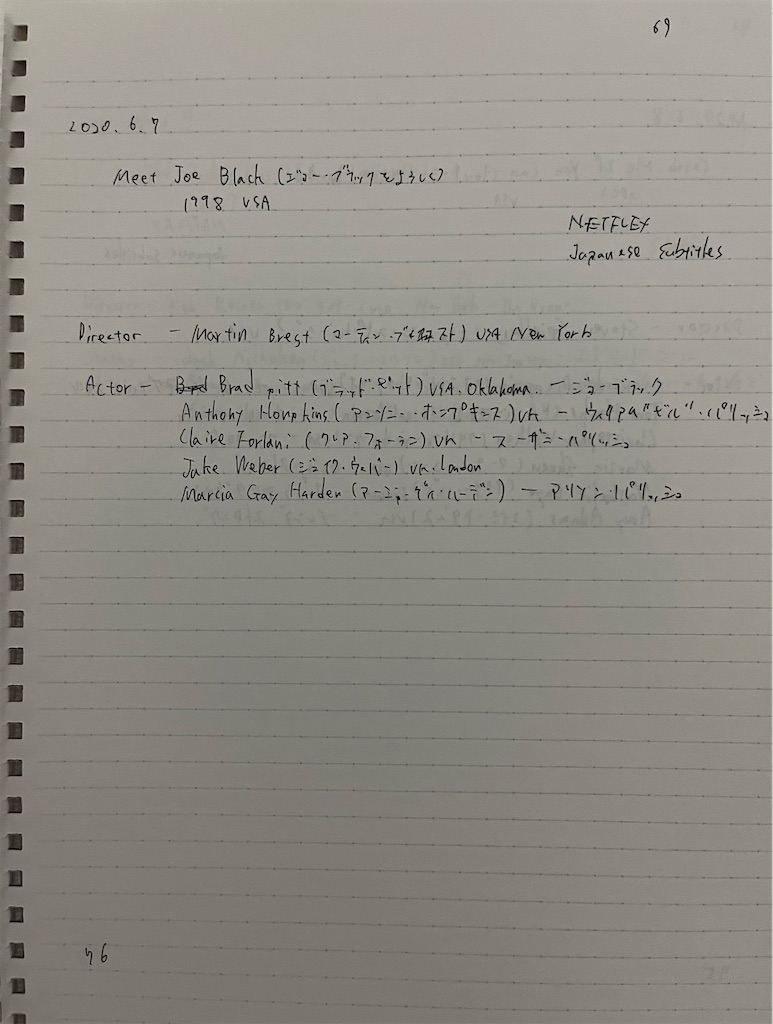 69
2020. 6. 7
Meet Joe Black (ジョー・ブラックをよろしく)
1998 USA
NETFLEX
Japanese Subtitles
Director - Martin Brest (マーティン・ブレスト) USA New York
Actor - Brad pitt (ブラッド・ピット) USA. Oklahoma. - ジョーブラック
Anthony Honpkins (アンソニー・ホンプキンス) UK - ウィリアム"ビル"・パリッシュ
Claire Forlani (クレア・フォーラニ) UK - スーザン・パリッシュ
Jake Weber (ジェイク・ウェバー) UK. london
Marcia Gay Harden (マーシャ・ゲイ・ハーデン) - アリソン・パリッシュ
76